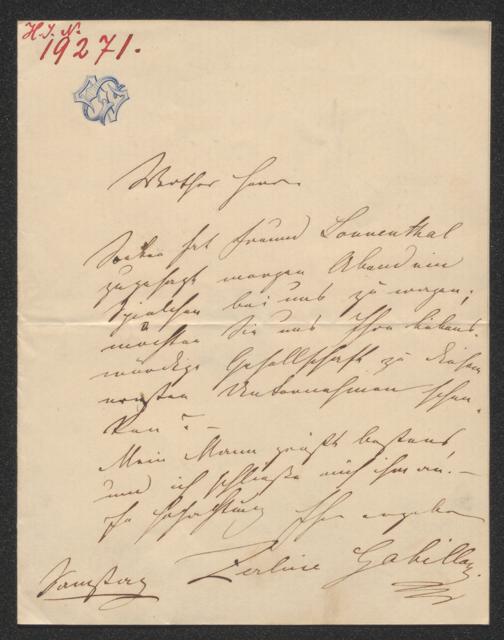 H. I. N.
19271.
Werther Herr.
Soeben hat Freund Sonnenthal
zugesagt morgen Abend ein
Spielchen bei uns zu wagen;
möchten Sie uns Ihre liebens-
würdige Gesellschaft zu diesem
ernsten Unternehmen schen-
ken? –
Mein Mann grüßt bestens
und ich schließe mich ihm an. –
Hochachtung Ihre ergebene
Zerline Gabillon.
Samstag